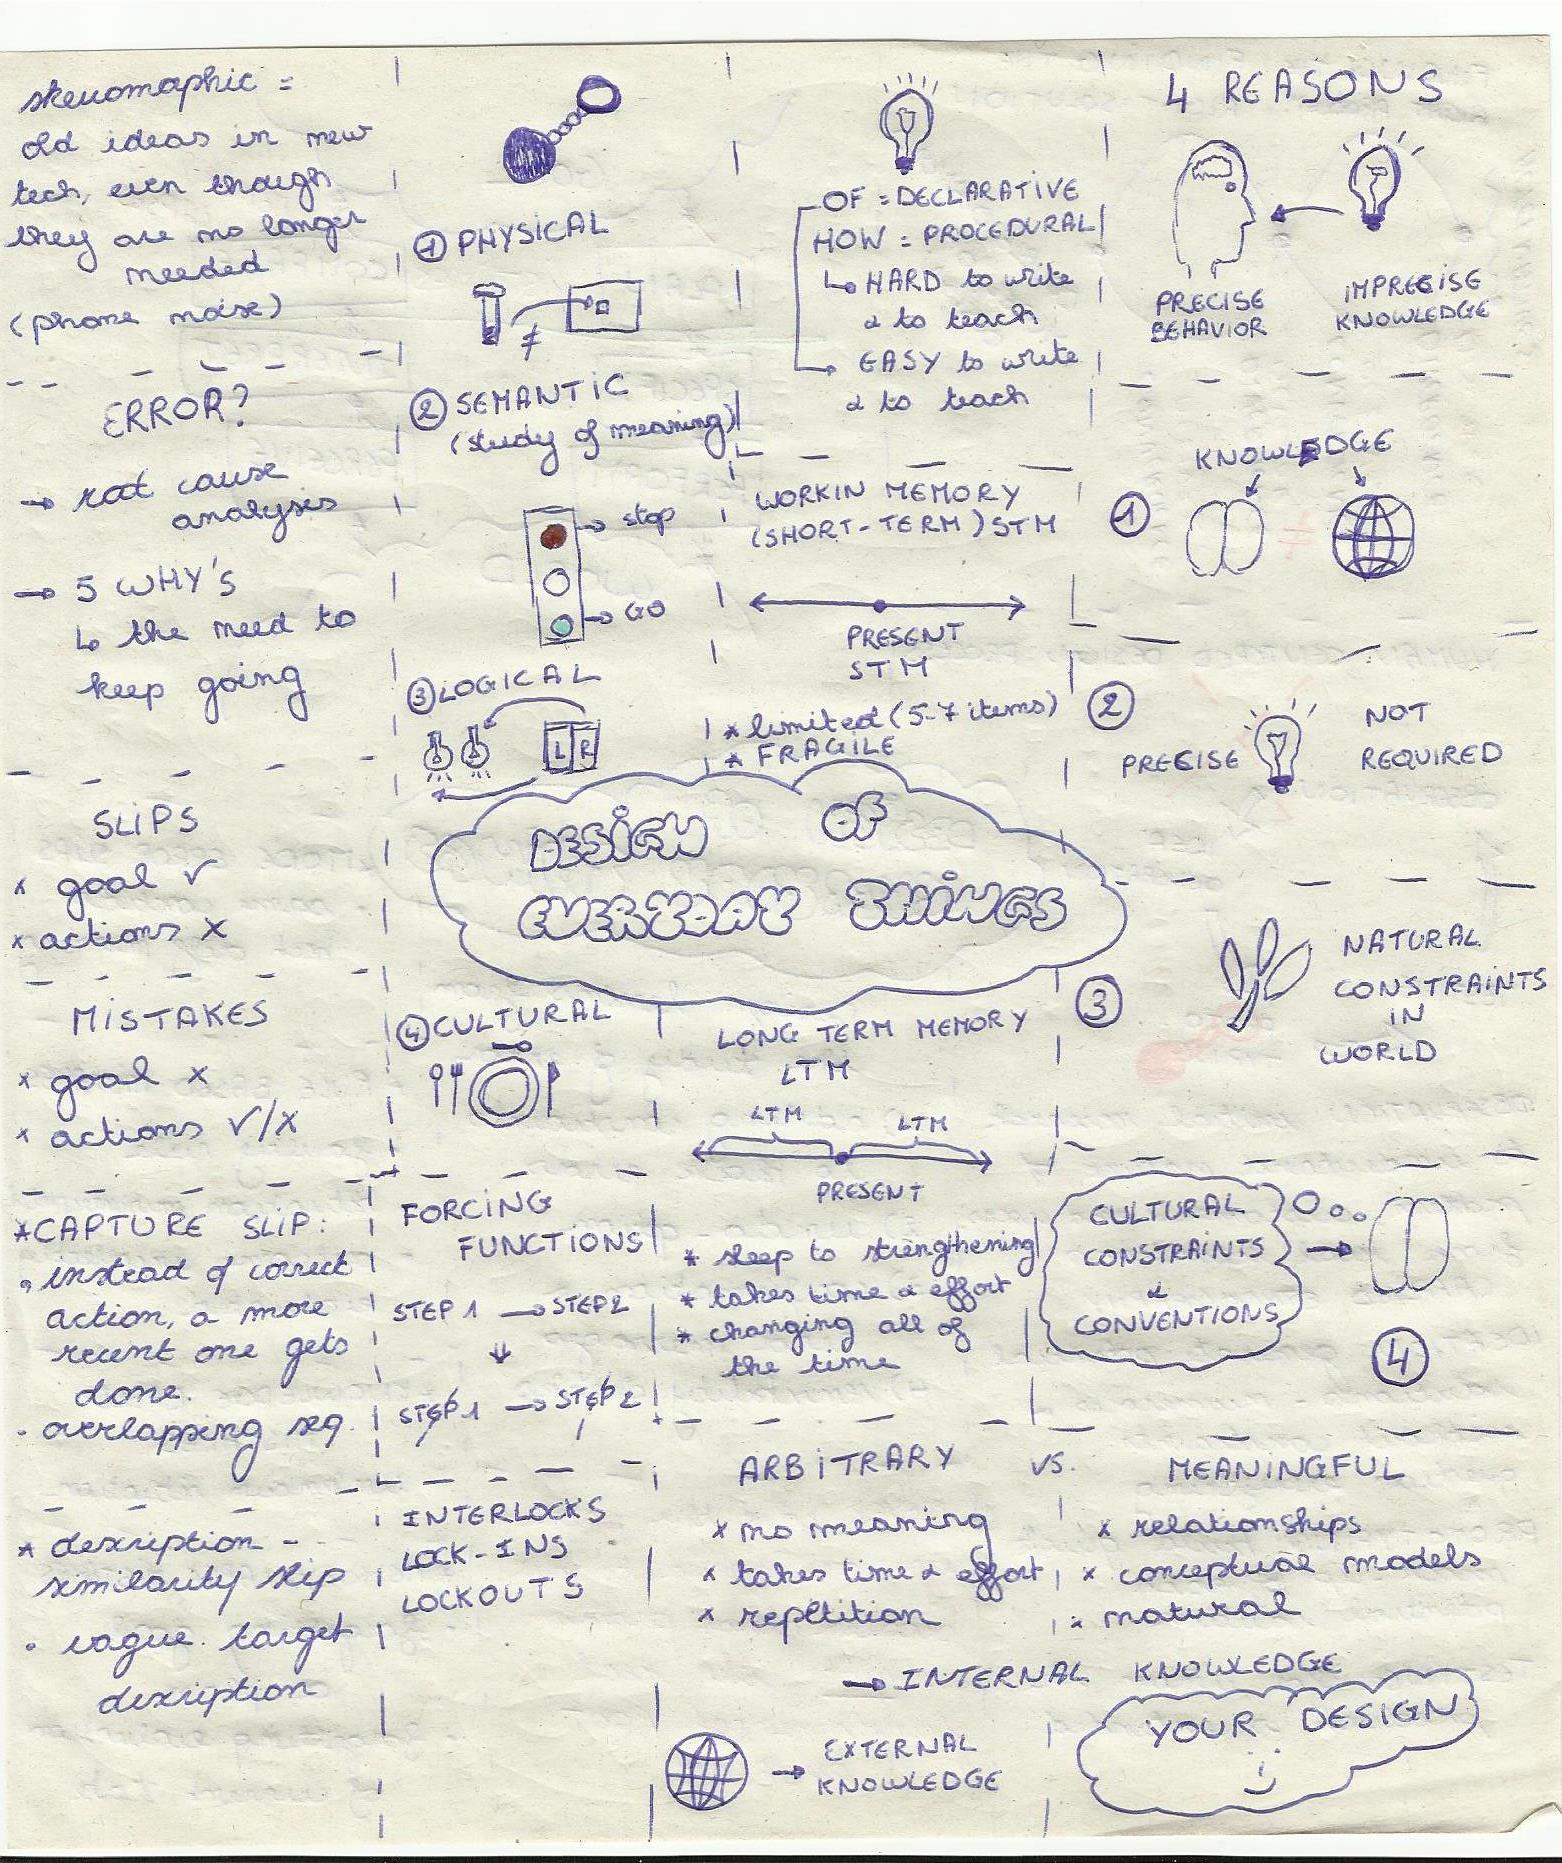 skeuomaphic =
old ideas in new
tech, even though
they are no longer
needed
(phone noise)
ERROR?
→ root cause
analysis
→ 5 WHY'S
↳ the need to
keep going
SLIPS
* goal ✓
* actions x
MISTAKES
* goal x
* actions ✓/x
*CAPTURE SLIP:
• instead of correct
action, a more
recent one gets
done.
• overlapping seq.
* description -
similarity slip
• vague target
description
① PHYSICAL
≠
② SEMANTIC
(study of meaning)
→ stop
→ GO
③ LOGICAL
L R
DESIGN OF
EVERYDAY THINGS
④ CULTURAL
FORCING
FUNCTIONS
STEP 1 → STEP 2
↓
STEP 1 → STEP 2
INTERLOCKS
LOCK-INS
LOCKOUTS
OF = DECLARATIVE
HOW = PROCEDURAL
↳ HARD to write
& to teach
→ EASY to write
& to teach
WORKIN MEMORY
(SHORT-TERM) STM
PRESENT
STM
* limited (5-7 items)
* FRAGILE
LONG TERM MEMORY
LTM
LTM LTM
PRESENT
* sleep to strengthening
* takes time & effort
* changing all of
the time
4 REASONS
PRECISE
BEHAVIOR
IMPRECISE
KNOWLEDGE
KNOWLEDGE
① ≠
②
PRECISE
NOT
REQUIRED
③
NATURAL
CONSTRAINTS
IN
WORLD
CULTURAL
CONSTRAINTS
&
CONVENTIONS
→
④
ARBITRARY VS. MEANINGFUL
* no meaning
* takes time & effort
* repetition
* relationships
* conceptual models
* natural
→ INTERNAL KNOWLEDGE
→ EXTERNAL
KNOWLEDGE
YOUR DESIGN